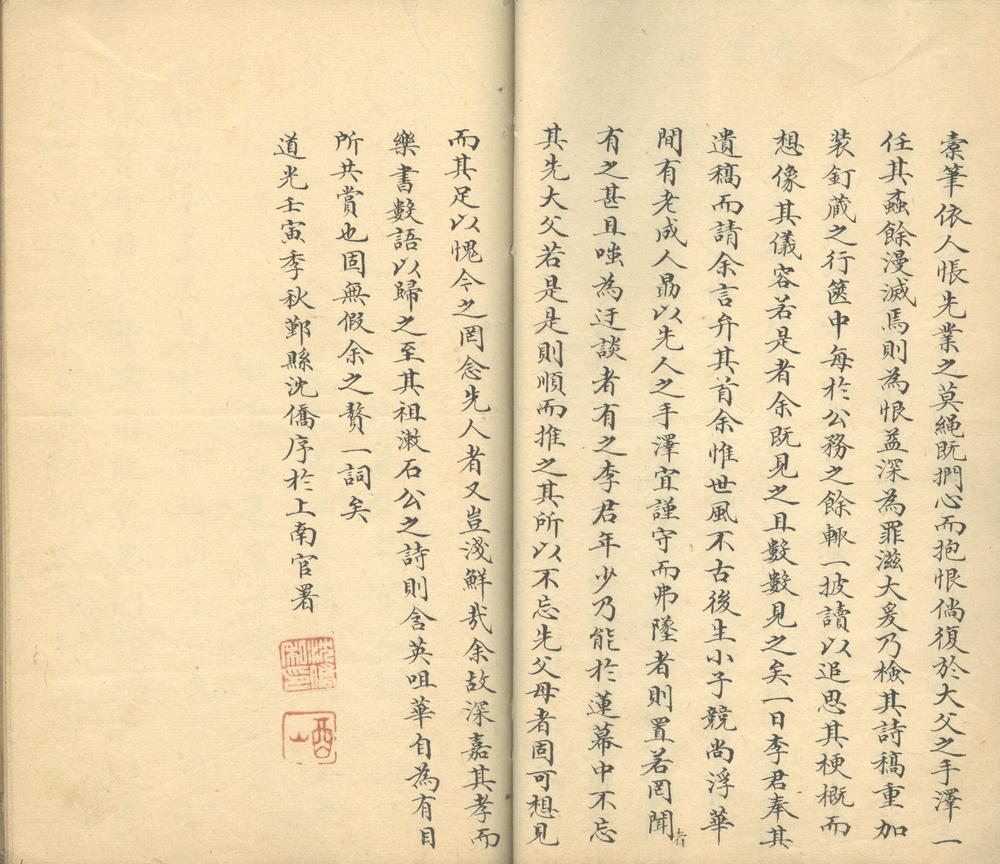 橐筆依人悵先業之莫繩既捫心而抱恨倘復於大父之手澤一
任其蟲餘漫滅焉則為恨益深為罪滋大爰乃檢其詩稿重加
装釘蔵之行篋中每於公務之餘輒一披讀以追思其梗概而
想像其儀容若是者余既見之且數數見之矣一日李君奉其
遺稿而請余言弁其首余惟世風不古後生小子競尚浮華
間有老成人勗以先人之手澤宜謹守而弗墜者則置若罔聞者
有之甚且嗤為迂談者有之李君年少乃能於蓮幕中不忘
其先大父若是是則順而推之其所以不忘先父母者固可想見
而其足以愧今之罔念先人者又豈淺鮮哉余故深嘉其孝而
樂書數語以歸之至其祖漱石公之詩則含英咀華自為有目
所共賞也固無假余之贅一詞矣
道光壬寅季秋鄞縣沈僑序於上南官署
酉山